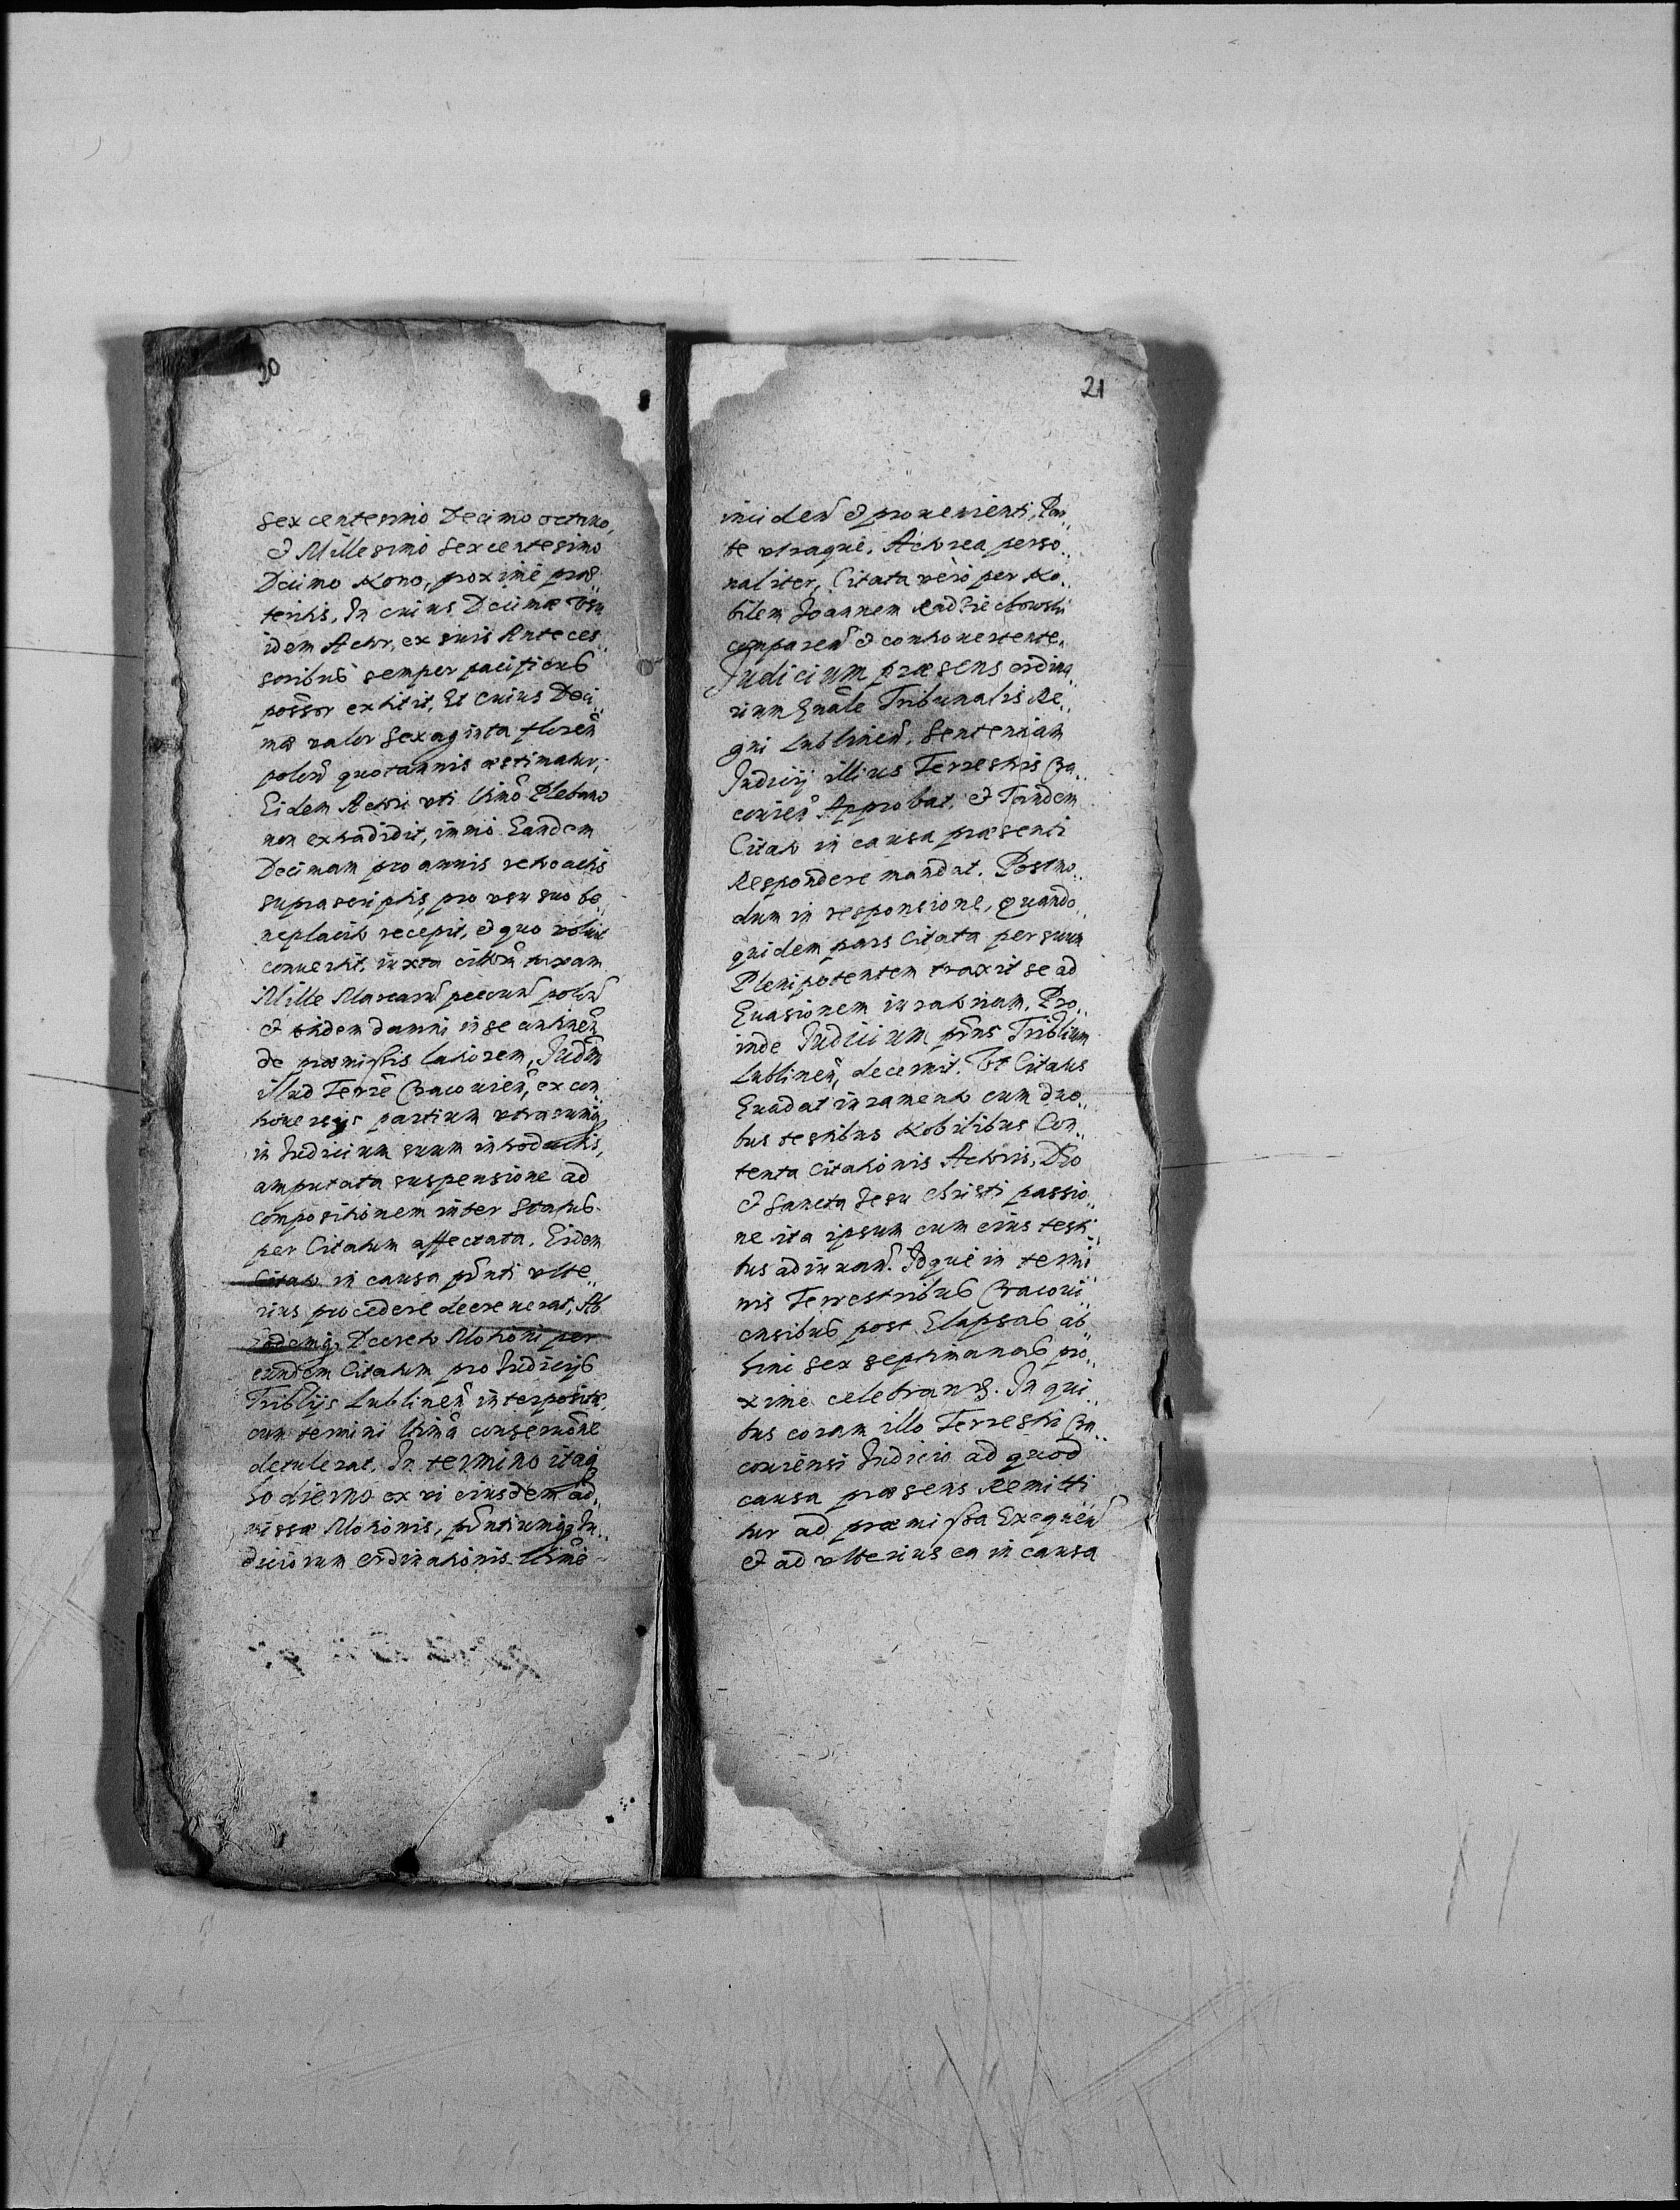 20
sexcentesimo Decimo octavo,
et Millesimo sexcentesimo
Decimo Nono, proxime præ„
teritis, In cuius Decimæ Usu
idem Actor, ex suis Anteces„
soribus semper pacificus
poss̃or extitit, Et cuius Deci„
mæ valor sexaginta floreñ
poloñ quotannis æstimatur,
Eidem Actori uti ltimõ Plebano
non extradidit, immo Eandem
Decimam pro annis retroactis
suprascriptis, pro usu suo be„
neplacito recepit, et quo voluit
convertit, iuxta taxam
Mille Marcarũ pecuñ poloñ
et totidem damni in se contineñ
de præmissis latiorem, Judm̃
illud Terrẽ Cracovieñ, ex con„
troversijs partium utrarumq̃
in Judicium suum introductis,
amputata suspensione ad
compositionem inter status
per Citatum affectata. Eidem
Citato in causa pñti ulte„
rius procedere decreverat, Ab
eodemq̃ Decreto Motioni per
eundem Citatum pro Judicijs
Triblijs Lublineñ interpositæ,
cum termini ltimã conserṽone
detulerat. In termino itaq̃
hodierno ex vi eiusdem ad„
missæ Motionis, pñtiumq̃ Ju„
diciorum ordinationis ltimẽ
21
incideñ et provenienti, Par„
te utraque, Actorea perso„
naliter, Citata vero per No„
bilem Joannem Radziechowski
compareñ et controvertente.
Judicium præsens ordina„
rium Gñale Tribunalis Re„
gni Lublineñ, Sententiam
Judicij illius Terrestris Cra„
covieñ Approbat, et Tandem
Citato in causa præsenti
Respondere mandat. Postmo„
dum in responsione, quando„
quidem pars Citata per suum
Plenipotentem traxit se ad
Evasionem iuratoriam, Pro„
inde Judicium pñs Triblium
Lublineñ, decernit. Ut Citatus
Evadat iuramento cum duo„
bus testibus Nobilibus Con„
tenta Citationis Actoris, Deo
et Sancta Jesu Christi passio„
ne ita ipsum cum eius testi„
bus adiuvañ. Idque in termi„
nis Terrestribus Cracovi„
ensibus post Elapsas ab
hinc sex septimanas pro„
xime celebrand. In qui„
bus coram illo Terrestri Cra„
coviensi Judicio ad quod
causa præsens Remitti„
tur ad præmissa Exequeñ
et ad ulterius ea in causa